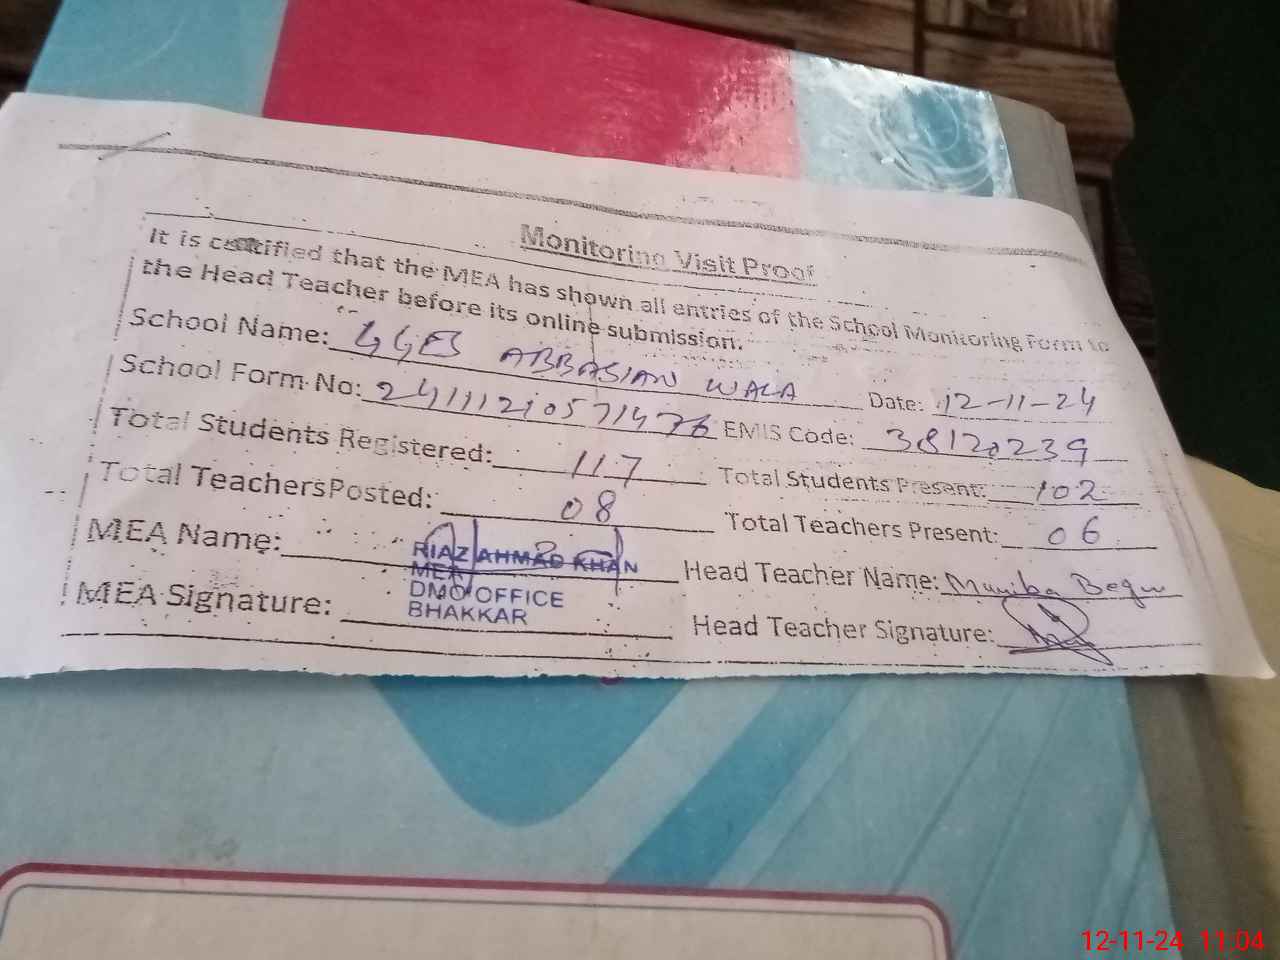 Monitoring Visit Proof
It is certified that the MEA has shown all entries of the School Monitoring Form to
the Head Teacher before its online submission.
School Name: GGES ABBASIAN WALA Date: 12-11-24
School Form No: 24111210571476 EMIS Code: 38120239
Total Students Registered: 117 Total Students Present: 102
Total Teachers Posted: 08 Total Teachers Present: 06
MEA Name: RIAZ AHMAD KHAN Head Teacher Name: Muniba Begum
MEA
DMO OFFICE
MEA Signature: BHAKKAR Head Teacher Signature:
12-11-24 11:04